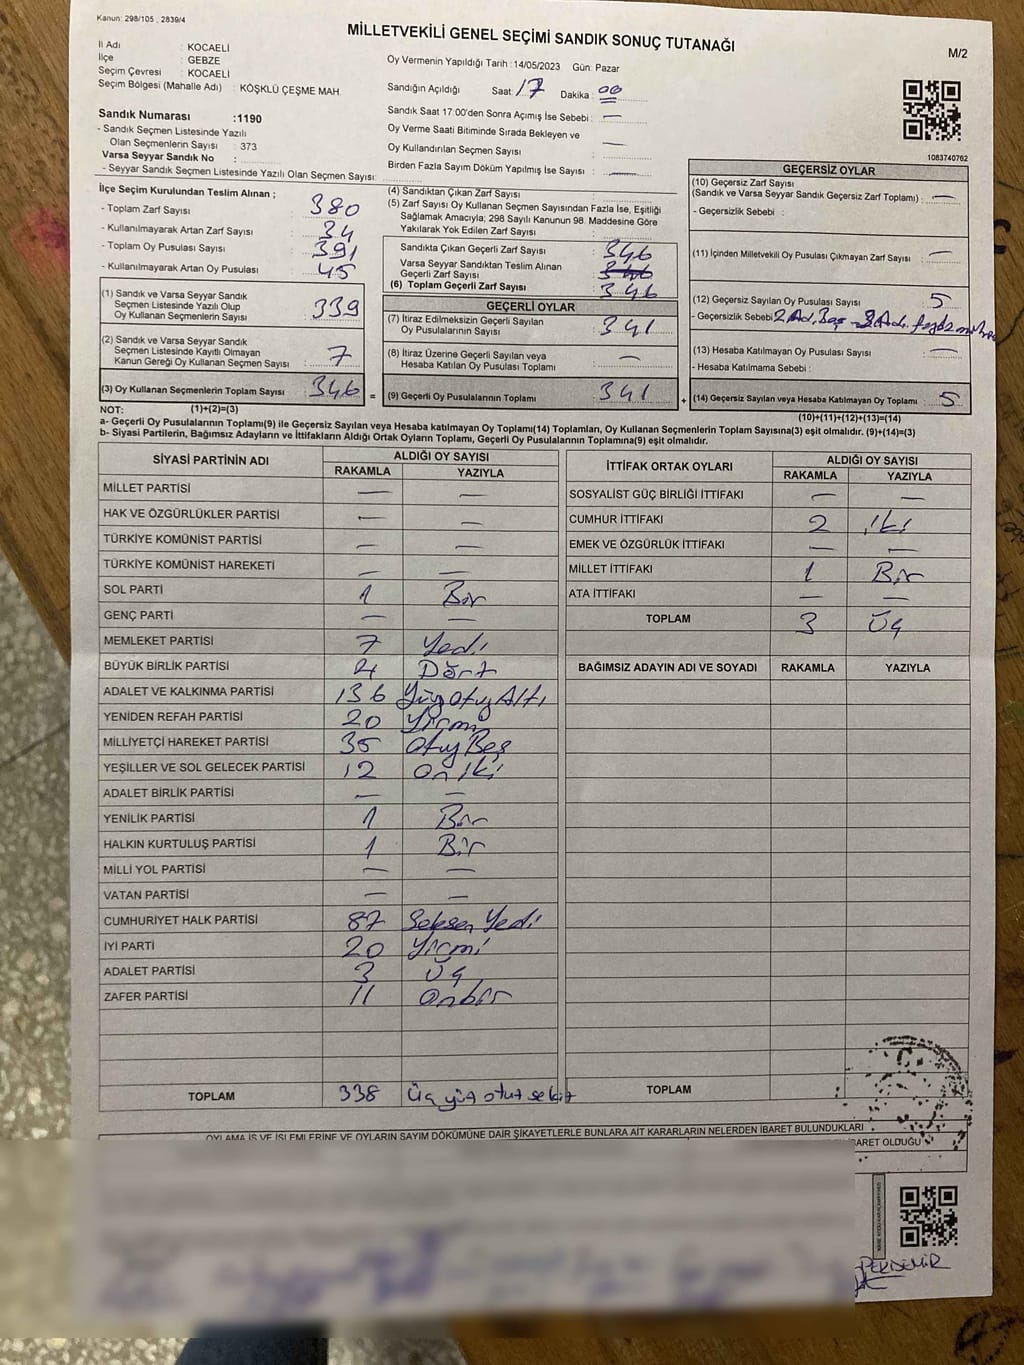 Kanun: 298/105 , 2839/4
MİLLETVEKİLİ GENEL SEÇİMİ SANDIK SONUÇ TUTANAĞI
M/2
İl Adı : KOCAELİ
İlçe : GEBZE
Seçim Çevresi : KOCAELİ
Seçim Bölgesi (Mahalle Adı) : KÖŞKLÜ ÇEŞME MAH.
Oy Vermenin Yapıldığı Tarih :14/05/2023 Gün: Pazar
Sandığın Açıldığı Saat: 17 Dakika : 00
Sandık Saat 17:00'den Sonra Açımış İse Sebebi : —
Oy Verme Saati Bitiminde Sırada Bekleyen ve
Oy Kullandırılan Seçmen Sayısı : —
Birden Fazla Sayım Döküm Yapılmış İse Sayısı : —
1083740762
Sandık Numarası :1190
- Sandık Seçmen Listesinde Yazılı
Olan Seçmenlerin Sayısı : 373
Varsa Seyyar Sandık No :
- Seyyar Sandık Seçmen Listesinde Yazılı Olan Seçmen Sayısı:
İlçe Seçim Kurulundan Teslim Alınan ;
- Toplam Zarf Sayısı : 380
- Kullanılmayarak Artan Zarf Sayısı : 34
- Toplam Oy Pusulası Sayısı : 391
- Kullanılmayarak Artan Oy Pusulası : 45
(1) Sandık ve Varsa Seyyar Sandık
Seçmen Listesinde Yazılı Olup
Oy Kullanan Seçmenlerin Sayısı : 339
(2) Sandık ve Varsa Seyyar Sandık
Seçmen Listesinde Kayıtlı Olmayan
Kanun Gereği Oy Kullanan Seçmen Sayısı : 7
(3) Oy Kullanan Seçmenlerin Toplam Sayısı : 346 =
(4) Sandıktan Çıkan Zarf Sayısı :
(5) Zarf Sayısı Oy Kullanan Seçmen Sayısından Fazla İse, Eşitliği
Sağlamak Amacıyla; 298 Sayılı Kanunun 98. Maddesine Göre
Yakılarak Yok Edilen Zarf Sayısı :
Sandıkta Çıkan Geçerli Zarf Sayısı : 346
Varsa Seyyar Sandıktan Teslim Alınan
Geçerli Zarf Sayısı : 346
(6) Toplam Geçerli Zarf Sayısı : 346
GEÇERLİ OYLAR
(7) İtiraz Edilmeksizin Geçerli Sayılan
Oy Pusulalarının Sayısı : 341
(8) İtiraz Üzerine Geçerli Sayılan veya
Hesaba Katılan Oy Pusulası Toplamı : —
(9) Geçerli Oy Pusulalarının Toplamı : 341 +
GEÇERSİZ OYLAR
(10) Geçersiz Zarf Sayısı
(Sandık ve Varsa Seyyar Sandık Geçersiz Zarf Toplamı) : —
- Geçersizlik Sebebi :
(11) İçinden Milletvekili Oy Pusulası Çıkmayan Zarf Sayısı : —
(12) Geçersiz Sayılan Oy Pusulası Sayısı : 5
- Geçersizlik Sebebi : 2 Ad. Boş
(13) Hesaba Katılmayan Oy Pusulası Sayısı : —
- Hesaba Katılmama Sebebi :
(14) Geçersiz Sayılan veya Hesaba Katılmayan Oy Toplamı : 5
NOT: (1)+(2)=(3) (10)+(11)+(12)+(13)=(14)
a- Geçerli Oy Pusulalarının Toplamı(9) ile Geçersiz Sayılan veya Hesaba Katılmayan Oy Toplamı(14) Toplamları, Oy Kullanan Seçmenlerin Toplam Sayısına(3) eşit olmalıdır. (9)+(14)=(3)
b- Siyasi Partilerin, Bağımsız Adayların ve İttifakların Aldığı Ortak Oyların Toplamı, Geçerli Oy Pusulalarının Toplamına(9) eşit olmalıdır.
SİYASİ PARTİNİN ADI ALDIĞI OY SAYISI
RAKAMLA YAZIYLA
MİLLET PARTİSİ — —
HAK VE ÖZGÜRLÜKLER PARTİSİ — —
TÜRKİYE KOMÜNİST PARTİSİ — —
TÜRKİYE KOMÜNİST HAREKETİ — —
SOL PARTİ 1 Bir
GENÇ PARTİ — —
MEMLEKET PARTİSİ 7 Yedi
BÜYÜK BİRLİK PARTİSİ 4 Dört
ADALET VE KALKINMA PARTİSİ 136 YüzOtuzAltı
YENİDEN REFAH PARTİSİ 20 Yirmi
MİLLİYETÇİ HAREKET PARTİSİ 35 OtuzBeş
YEŞİLLER VE SOL GELECEK PARTİSİ 12 On İki
ADALET BİRLİK PARTİSİ — —
YENİLİK PARTİSİ 1 Bir
HALKIN KURTULUŞ PARTİSİ 1 Bir
MİLLİ YOL PARTİSİ — —
VATAN PARTİSİ — —
CUMHURİYET HALK PARTİSİ 87 Seksen Yedi
İYİ PARTİ 20 Yirmi
ADALET PARTİSİ 3 Üç
ZAFER PARTİSİ 11 Onbir
TOPLAM 338 Üç yüz otuz sekiz
İTTİFAK ORTAK OYLARI ALDIĞI OY SAYISI
RAKAMLA YAZIYLA
SOSYALİST GÜÇ BİRLİĞİ İTTİFAKI — —
CUMHUR İTTİFAKI 2 iki
EMEK VE ÖZGÜRLÜK İTTİFAKI — —
MİLLET İTTİFAKI 1 Bir
ATA İTTİFAKI — —
TOPLAM 3 Üç
BAĞIMSIZ ADAYIN ADI VE SOYADI RAKAMLA YAZIYLA
TOPLAM
OYLAMA İŞ VE İŞLEMLERİNE VE OYLARIN SAYIM DÖKÜMÜNE DAİR ŞİKAYETLERLE BUNLARA AİT KARARLARIN NELERDEN İBARET BULUNDUKLARI
BARET OLDUĞU